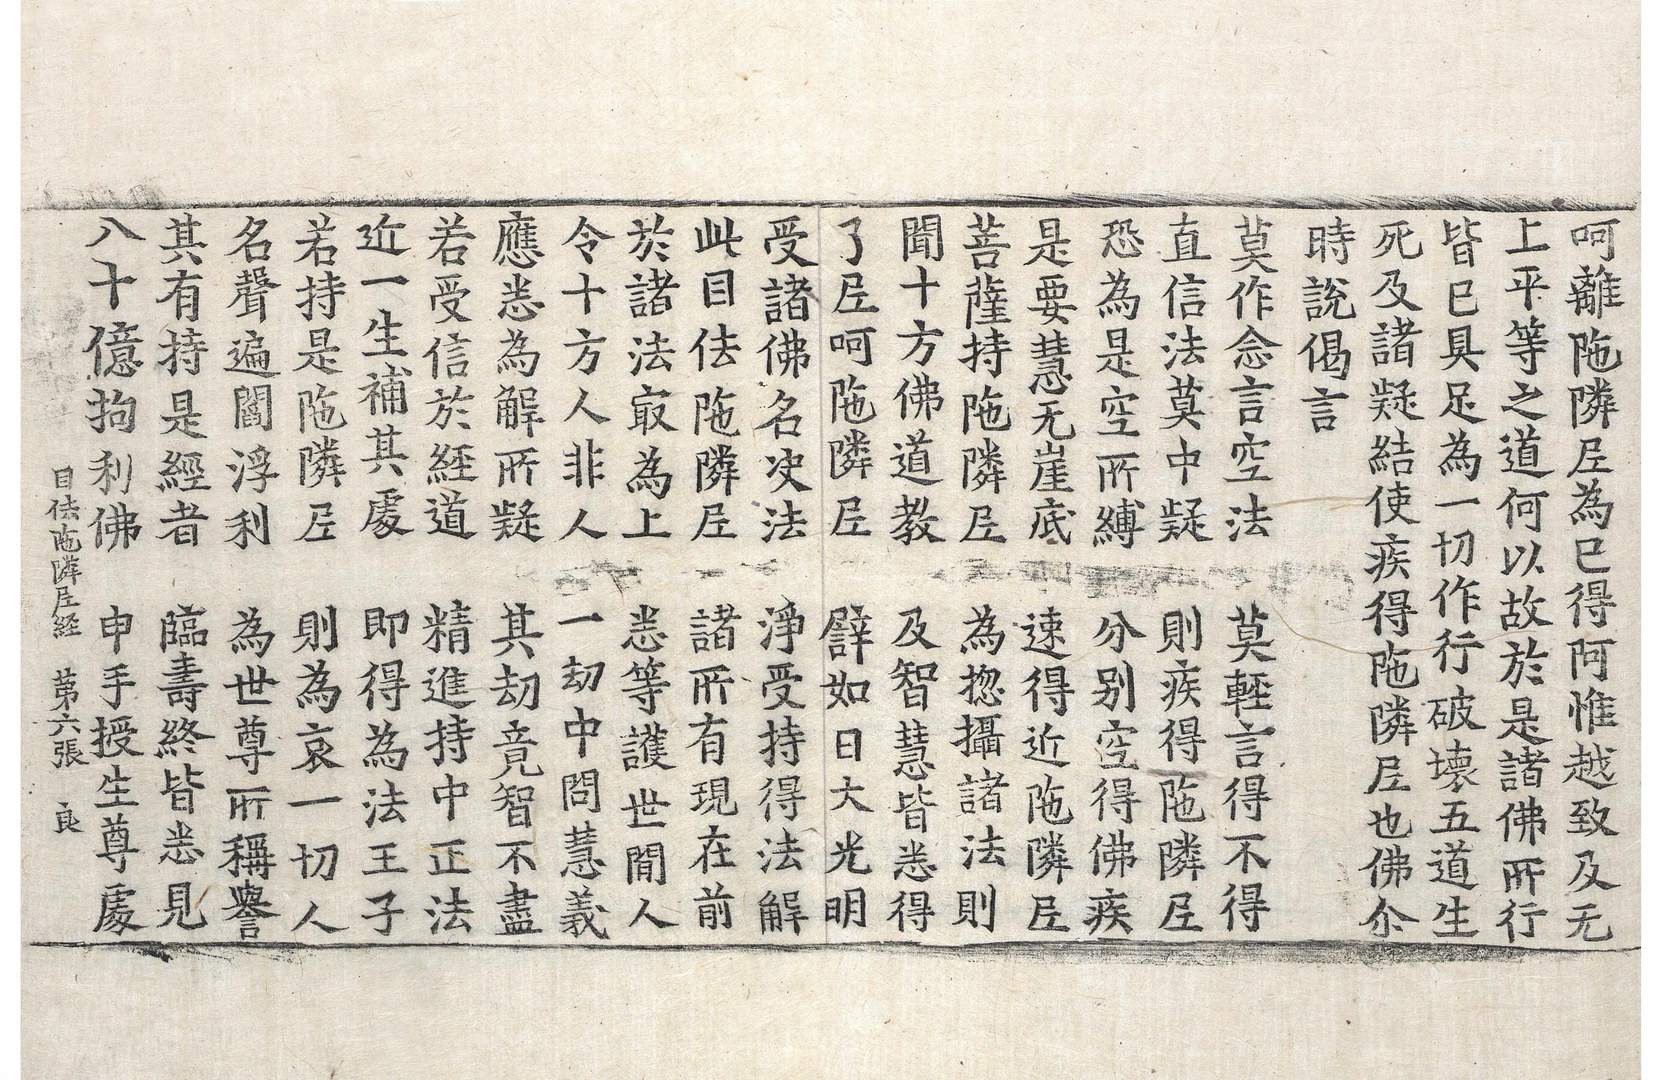 呵離陁隣𡰱為已得阿惟越致及无
上平等之道何以故於是諸佛所行
皆已具足為一切作行破壞五道生
死及諸疑結使疾得陁隣𡰱也佛尒
時說偈言
莫作念言空法　莫輕言得不得
直信法莫中疑　則疾得陁隣𡰱
恐為是空所縛　分別空得佛疾
是要慧无崖底　速得近陁隣𡰱
菩薩持陁隣𡰱　為揔攝諸法則
聞十方佛道教　及智慧皆悉得
了𡰱呵陁隣𡰱　譬如日大光明
受諸佛名決法　淨受持得法解
此目佉陁隣𡰱　諸所有現在前
於諸法㝡為上　悉等護世間人
令十方人非人　一劫中問慧義
應悉為解所疑　其劫竟智不盡
若受信於經道　精進持中正法
近一生補其處　即得為法王子
若持是陁隣𡰱　則為哀一切人
名聲遍閻浮利　為世尊所稱譽
其有持是經者　臨壽終皆悉見
八十億拘利佛　申手授生尊處
目佉陁隣𡰱経　第六張　良